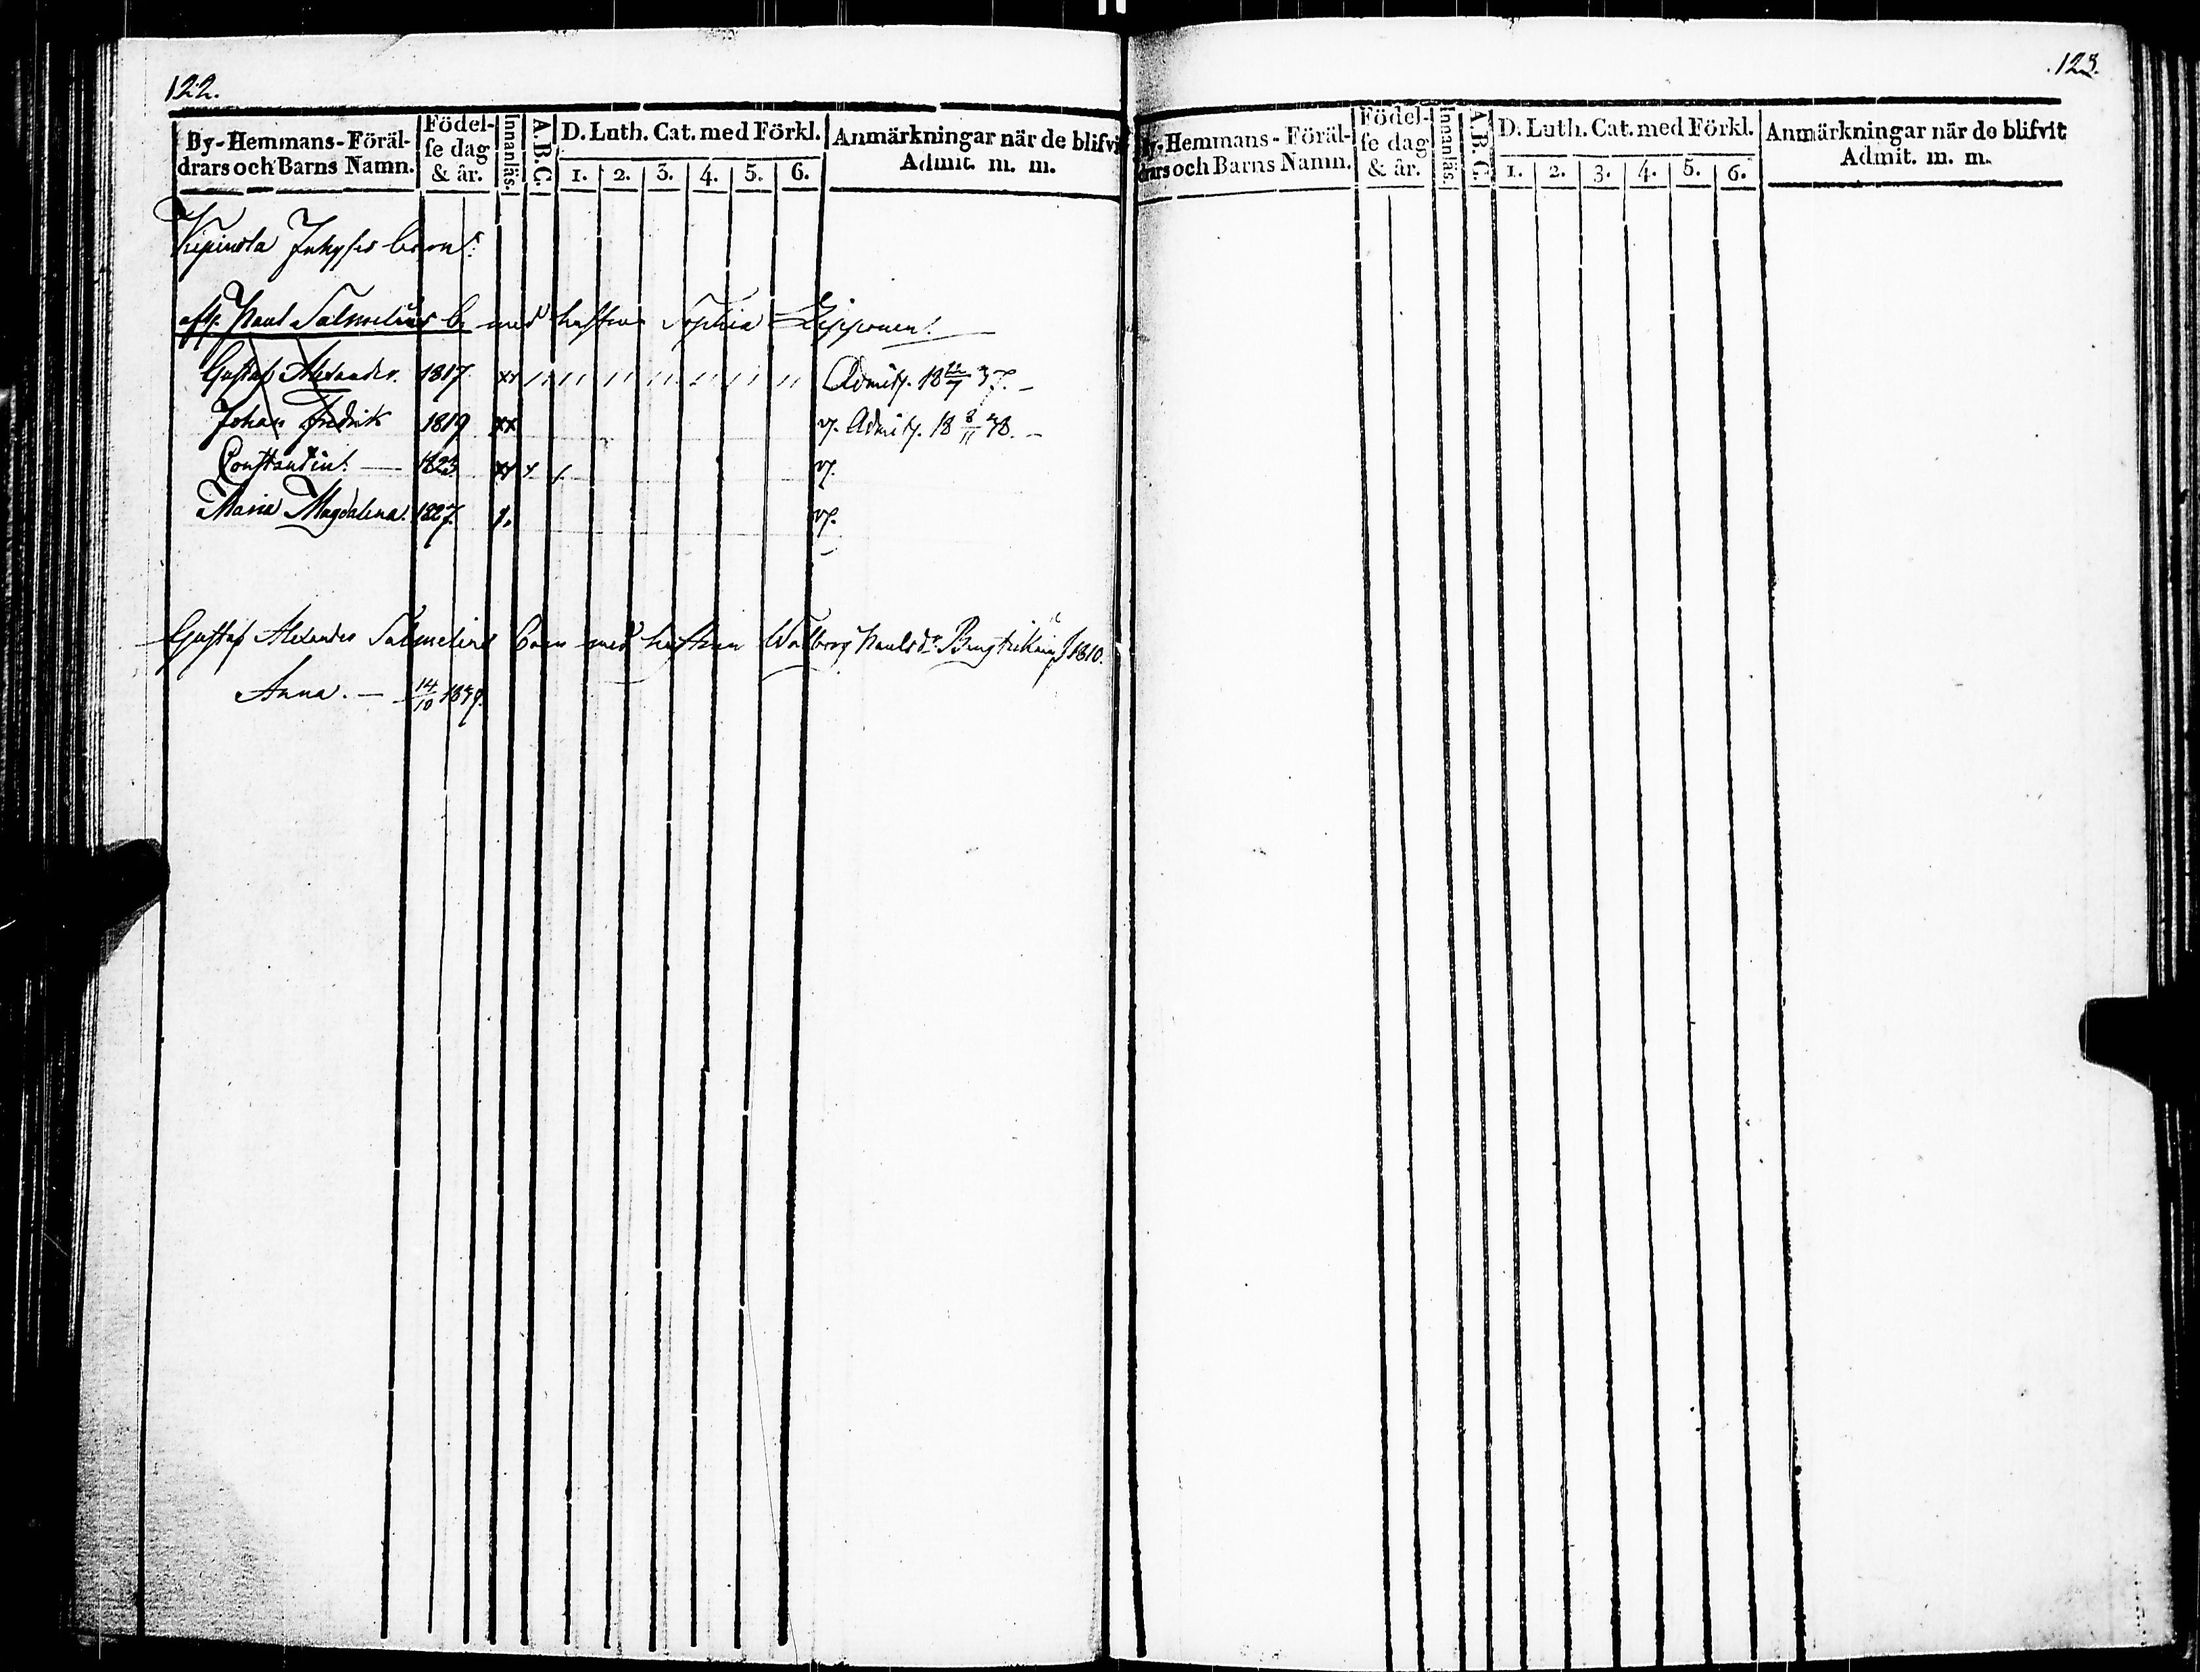 122.
By-Hemmans-Föräl-
drars och Barns Namn.
Födel-
se dag
& år.
Innanläs.
A.B.C.
D. Luth. Cat. med Förkl.
1. 2. 3. 4. 5. 6.
Anmärkningar när de blifvit
Admit. m. m.
barn
Paul Salmelius b. med hustrun Sophia Lipponen.
Gustaf Alexander. 1817. xx Admitt. 18 22/7 37.
Johan Fredrik 1819 xx Admitt. 18 8/11 38.
Constantin. 1823
Maria Magdalena. 1827.
Gustaf Alexander Salmelius barn med hustrun Walborg Paulsdr 1810.
Anna. 14/10 1839.
123.
By-Hemmans-Föräl-
drars och Barns Namn.
Födel-
se dag
& år.
Innanläs.
A.B.C.
D. Luth. Cat. med Förkl.
1. 2. 3. 4. 5. 6.
Anmärkningar när de blifvit
Admit. m. m.